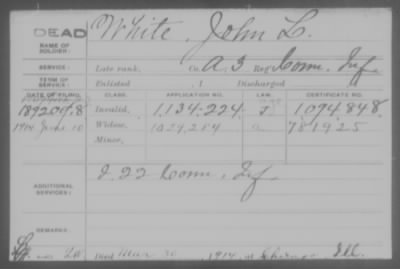 DEAD White, John L.
NAME OF SOLDIER:
SERVICE: Late rank, Co. A, 3 Reg't Conn. Inf.
TERM OF SERVICE: Enlisted , 1 Discharged , 1
DATE OF FILING. CLASS. APPLICATION NO. LAW. CERTIFICATE NO.
1892 Invalid, 1,134,224 1094,848
1914 June 10 Widow, 1029,254 781925
Minor,
ADDITIONAL SERVICES: I. 22 Conn. Inf.
REMARKS:
Died Mar 30, 1914, at Ill.